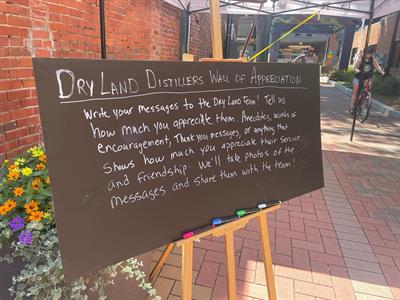 Dry Land Distillers Wall of Appreciation
Write your messages to the Dry Land Team! Tell us
how much you appreciate them. Anecdotes, words of
encouragement, Thank you messages, or anything that
shows how much you appreciate their service
and friendship. We'll take photos of the
messages and share them with the team!